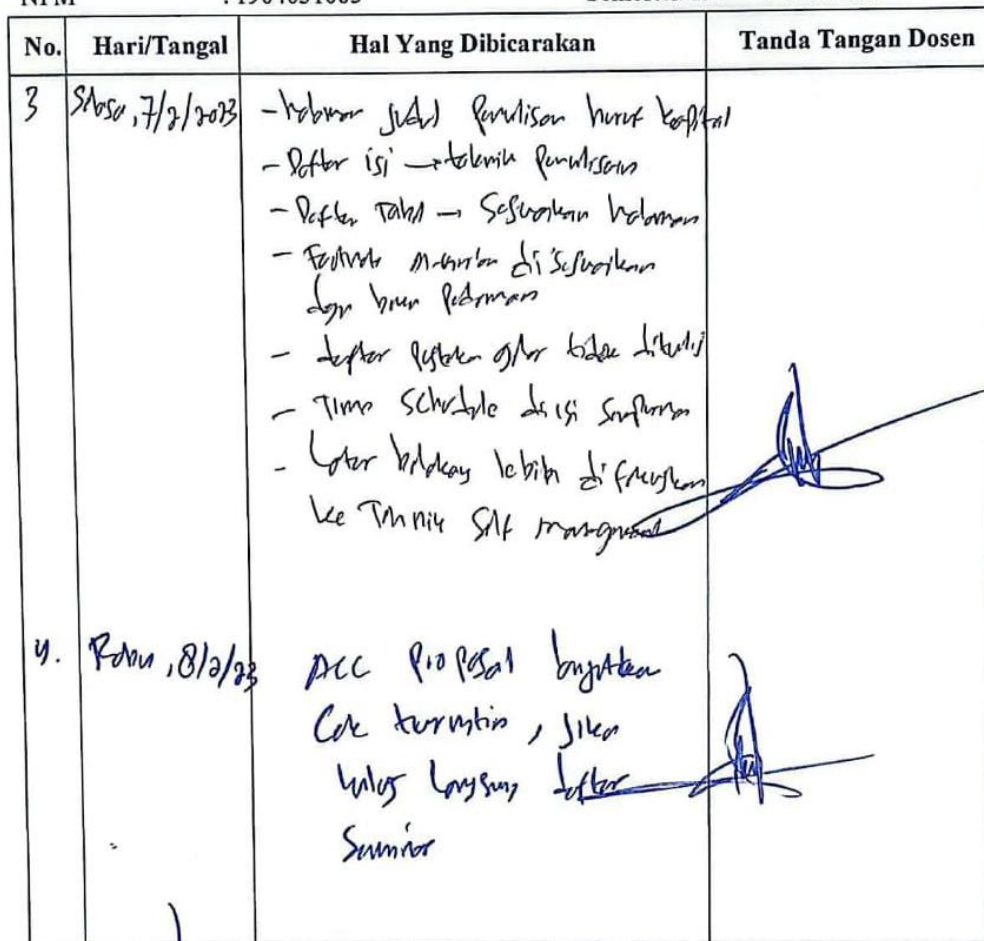 No. Hari/Tangal Hal Yang Dibicarakan Tanda Tangan Dosen
3 Selasa, 7/2/2023 - halaman judul penulisan huruf kapital
- Daftar isi → teknik penulisan
- Daftar Tabel → Sesuaikan halaman
- Footnote disesuaikan
dgn pedoman
- daftar pustaka gelar tidak ditulis
- Time Schedule di isi
- Latar belakang lebih di fokuskan
ke Tehnik Self management
4. Rabu, 8/2/23 ACC Proposal lanjutkan
Cek turnitin, Jika
lulus langsung daftar
Seminar